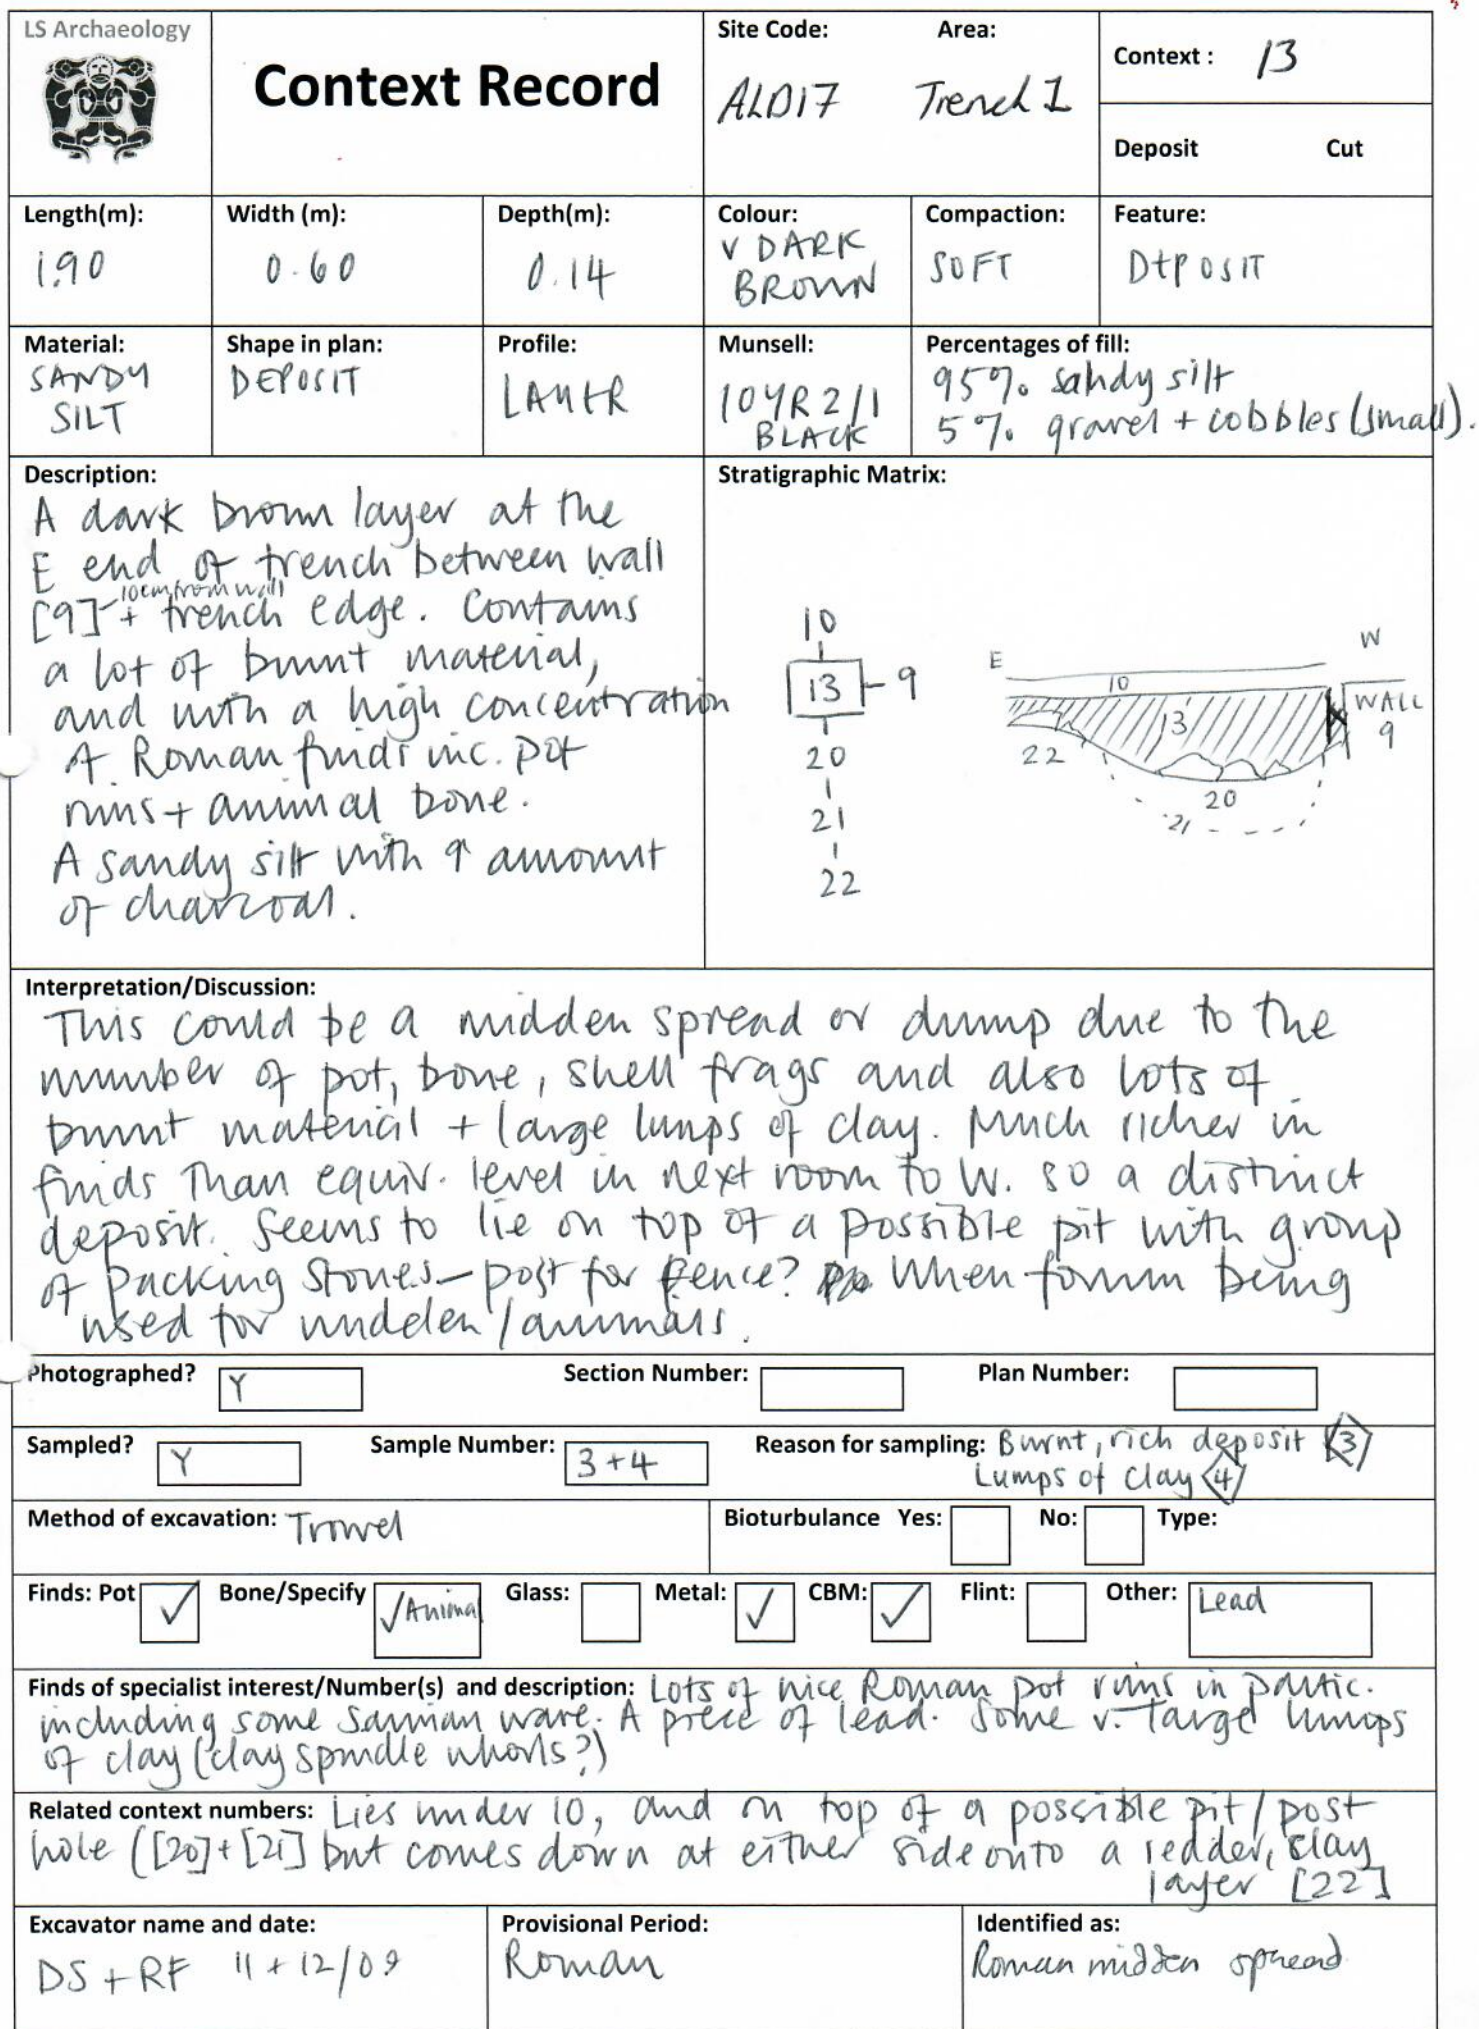 LS Archaeology
Context Record
Site Code: Area:
ALD17 Trench 1
Context : 13
Deposit Cut
Length(m): Width (m): Depth(m): Colour: Compaction: Feature:
1.90 0.60 0.14 V DARK BROWN SOFT DEPOSIT
Material: Shape in plan: Profile: Munsell: Percentages of fill:
SANDY DEPOSIT LAYER 10YR 2/1 95% sandy silt
SILT BLACK 5% gravel + cobbles (small).
Description:
A dark brown layer at the
E end of trench between wall
10cm from wall
[9] + trench edge. Contains
a lot of burnt material,
and with a high concentration
of Roman finds inc. pot
rims + animal bone.
A sandy silt with ↑ amount
of charcoal.
Stratigraphic Matrix:
10
13 9
20
21
22
E W
10
13 WALL
22 9
20
21
Interpretation/Discussion:
This could be a midden spread or dump due to the
number of pot, bone, shell frags and also lots of
burnt material + large lumps of clay. Much richer in
finds than equiv. level in next room to W. so a distinct
deposit. Seems to lie on top of a possible pit with group
of packing stones – post for fence? When forum being
used for midden/animals.
Photographed? Y Section Number: Plan Number:
Sampled? Y Sample Number: 3+4 Reason for sampling: Burnt, rich deposit <3>
Lumps of clay <4>
Method of excavation: Trowel Bioturbulance Yes: No: Type:
Finds: Pot ✓ Bone/Specify ✓Animal Glass: Metal: ✓ CBM: ✓ Flint: Other: Lead
Finds of specialist interest/Number(s) and description: Lots of nice Roman pot rims in partic.
including some samian ware. A piece of lead. Some v. large lumps
of clay (clay spindle whorls?)
Related context numbers: Lies under 10, and on top of a possible pit/post
hole ([20]+[21] but comes down at either side onto a redder, clay
layer [22]
Excavator name and date: Provisional Period: Identified as:
DS + RF 11+12/09 Roman Roman midden spread